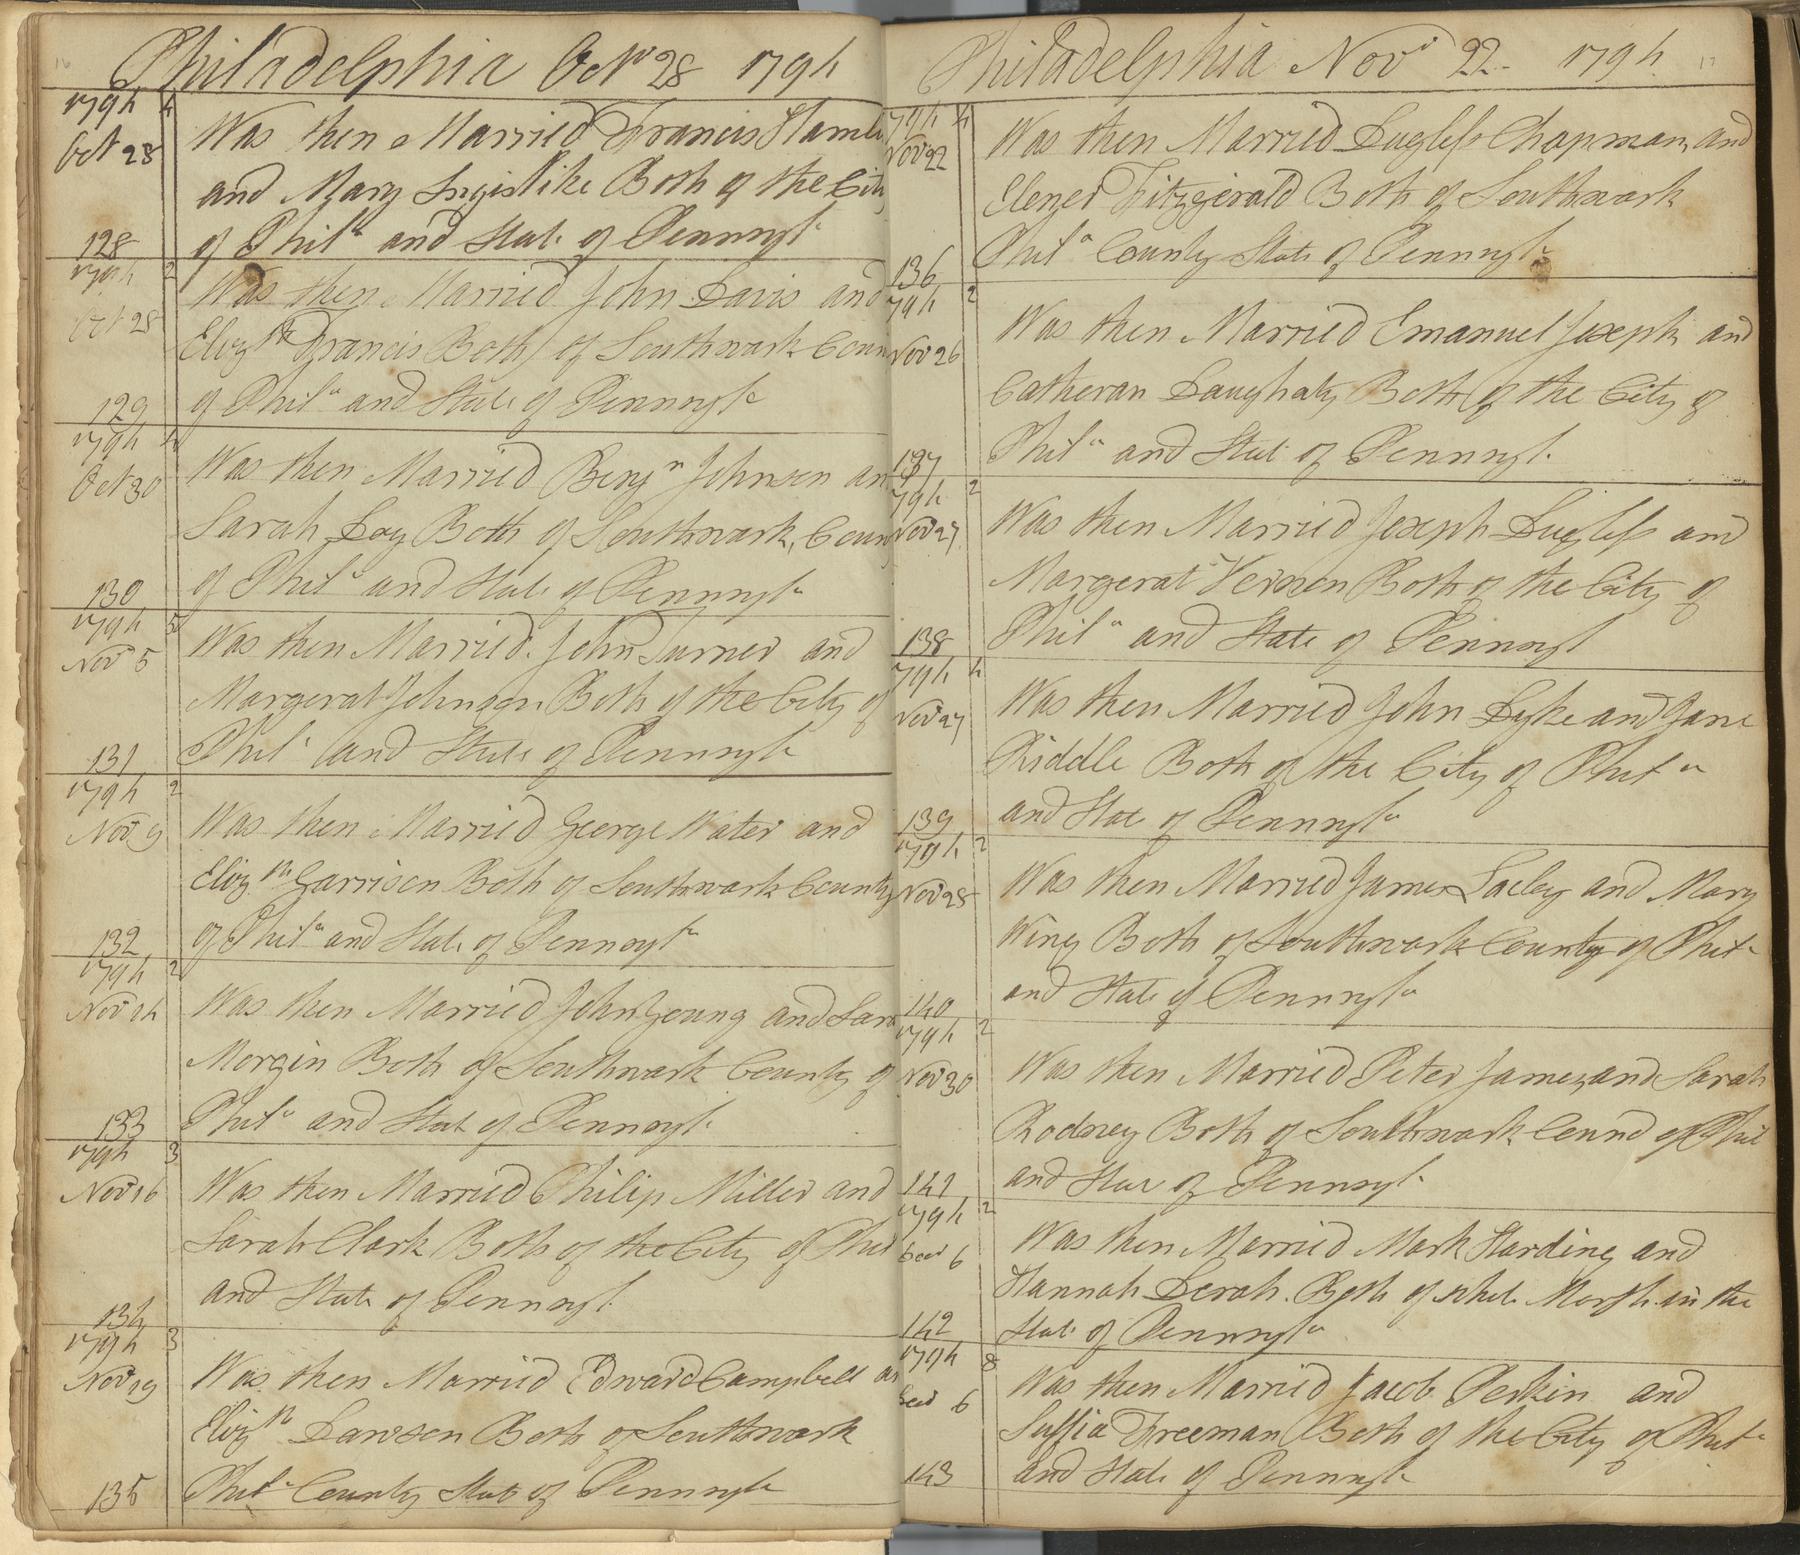 16
Philadelphia Octr 28 1794
1794 4
Oct 28
Was then Married Francis Hamle
and Mary Both of the City
of Phila and State of Pennsyla
128
1794 2
Oct 28
Was then Married John Davis and
Elizth Francis Both of Southwark Coun
of Phila and State of Pennsyla
129
1794 4
Oct 30
Was then Married Benjn Johnson an
Sarah Day Both of Southwark, Coun
of Phila and State of Pennsyla
130
1794 5
Nov 5
Was then Married John Turner and
Margerat Johnson Both of the City of
Phila and State of Pennsyla
131
1794 2
Nov 9
Was then Married George Water and
Elizth Garrison Both of Southwark County
of Phila and State of Pennsyla
132
1794 2
Nov 14
Was then Married John Young and Sara
Morgin Both of Southwark County of
Phila and State of Pennsyla
133
1794 3
Nov 16
Was then Married Philip Miller and
Sarah Clark Both of the City of Phil
and State of Pennsyl
134
1794 3
Nov 19
Was then Married Edward Campbell an
Elizth Dawson Both of Southwark
Phila County State of Pennsyla
135
Philadelphia Novr 22 1794 17
1794 4
Nov 22
Was then Married Dugless Chapman and
Elener Fitzgerald Both of Southwark
Phila County State of Pennsyla
136
1794 2
Nov 26
Was then Married Emanuel Joseph and
Catheran Daughaty Both of the City of
Phila and State of Pennsyl
137
1794 2
Nov 27
Was then Married Joseph Dugless and
Margerat Vernon Both of the City of
Phila and State of Pennsyl
138
1794 4
Nov 27
Was then Married John Dyke and Jane
Riddle Both of the City of Phila
and State of Pennsyla
139
1794 2
Nov 28
Was then Married James Lacley and Mary
Wing Both of Southwark County of Phila
and State of Pennsyla
140
1794 2
Nov 30
Was then Married Peter James and Sarah
Rodney Both of Southwark Cound of Phil
and State of Pennsyl
141
1794 2
Decr 6
Was then Married Mark Harding and
Hannah Derah Both of white Marsh in the
State of Pennsyla
142
1794 8
Decr 6
Was then Married Jacob Perkin and
Suffia Freeman Both of the City of Phila
and State of Pennsyla
143